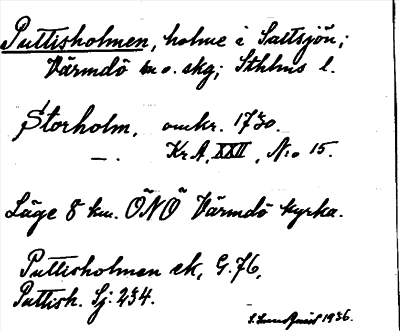 Puttisholmen, holme i Saltsjön;
Värmdö sn o. skg; Sthlms l.
Storholm, omkr. 1730.
— . KrA, XXII, N:o 15.
Läge 8 km. ÖNÖ Värmdö kyrka.
Puttisholmen ek, G. 76,
Puttish. Sj: 234.
1936.